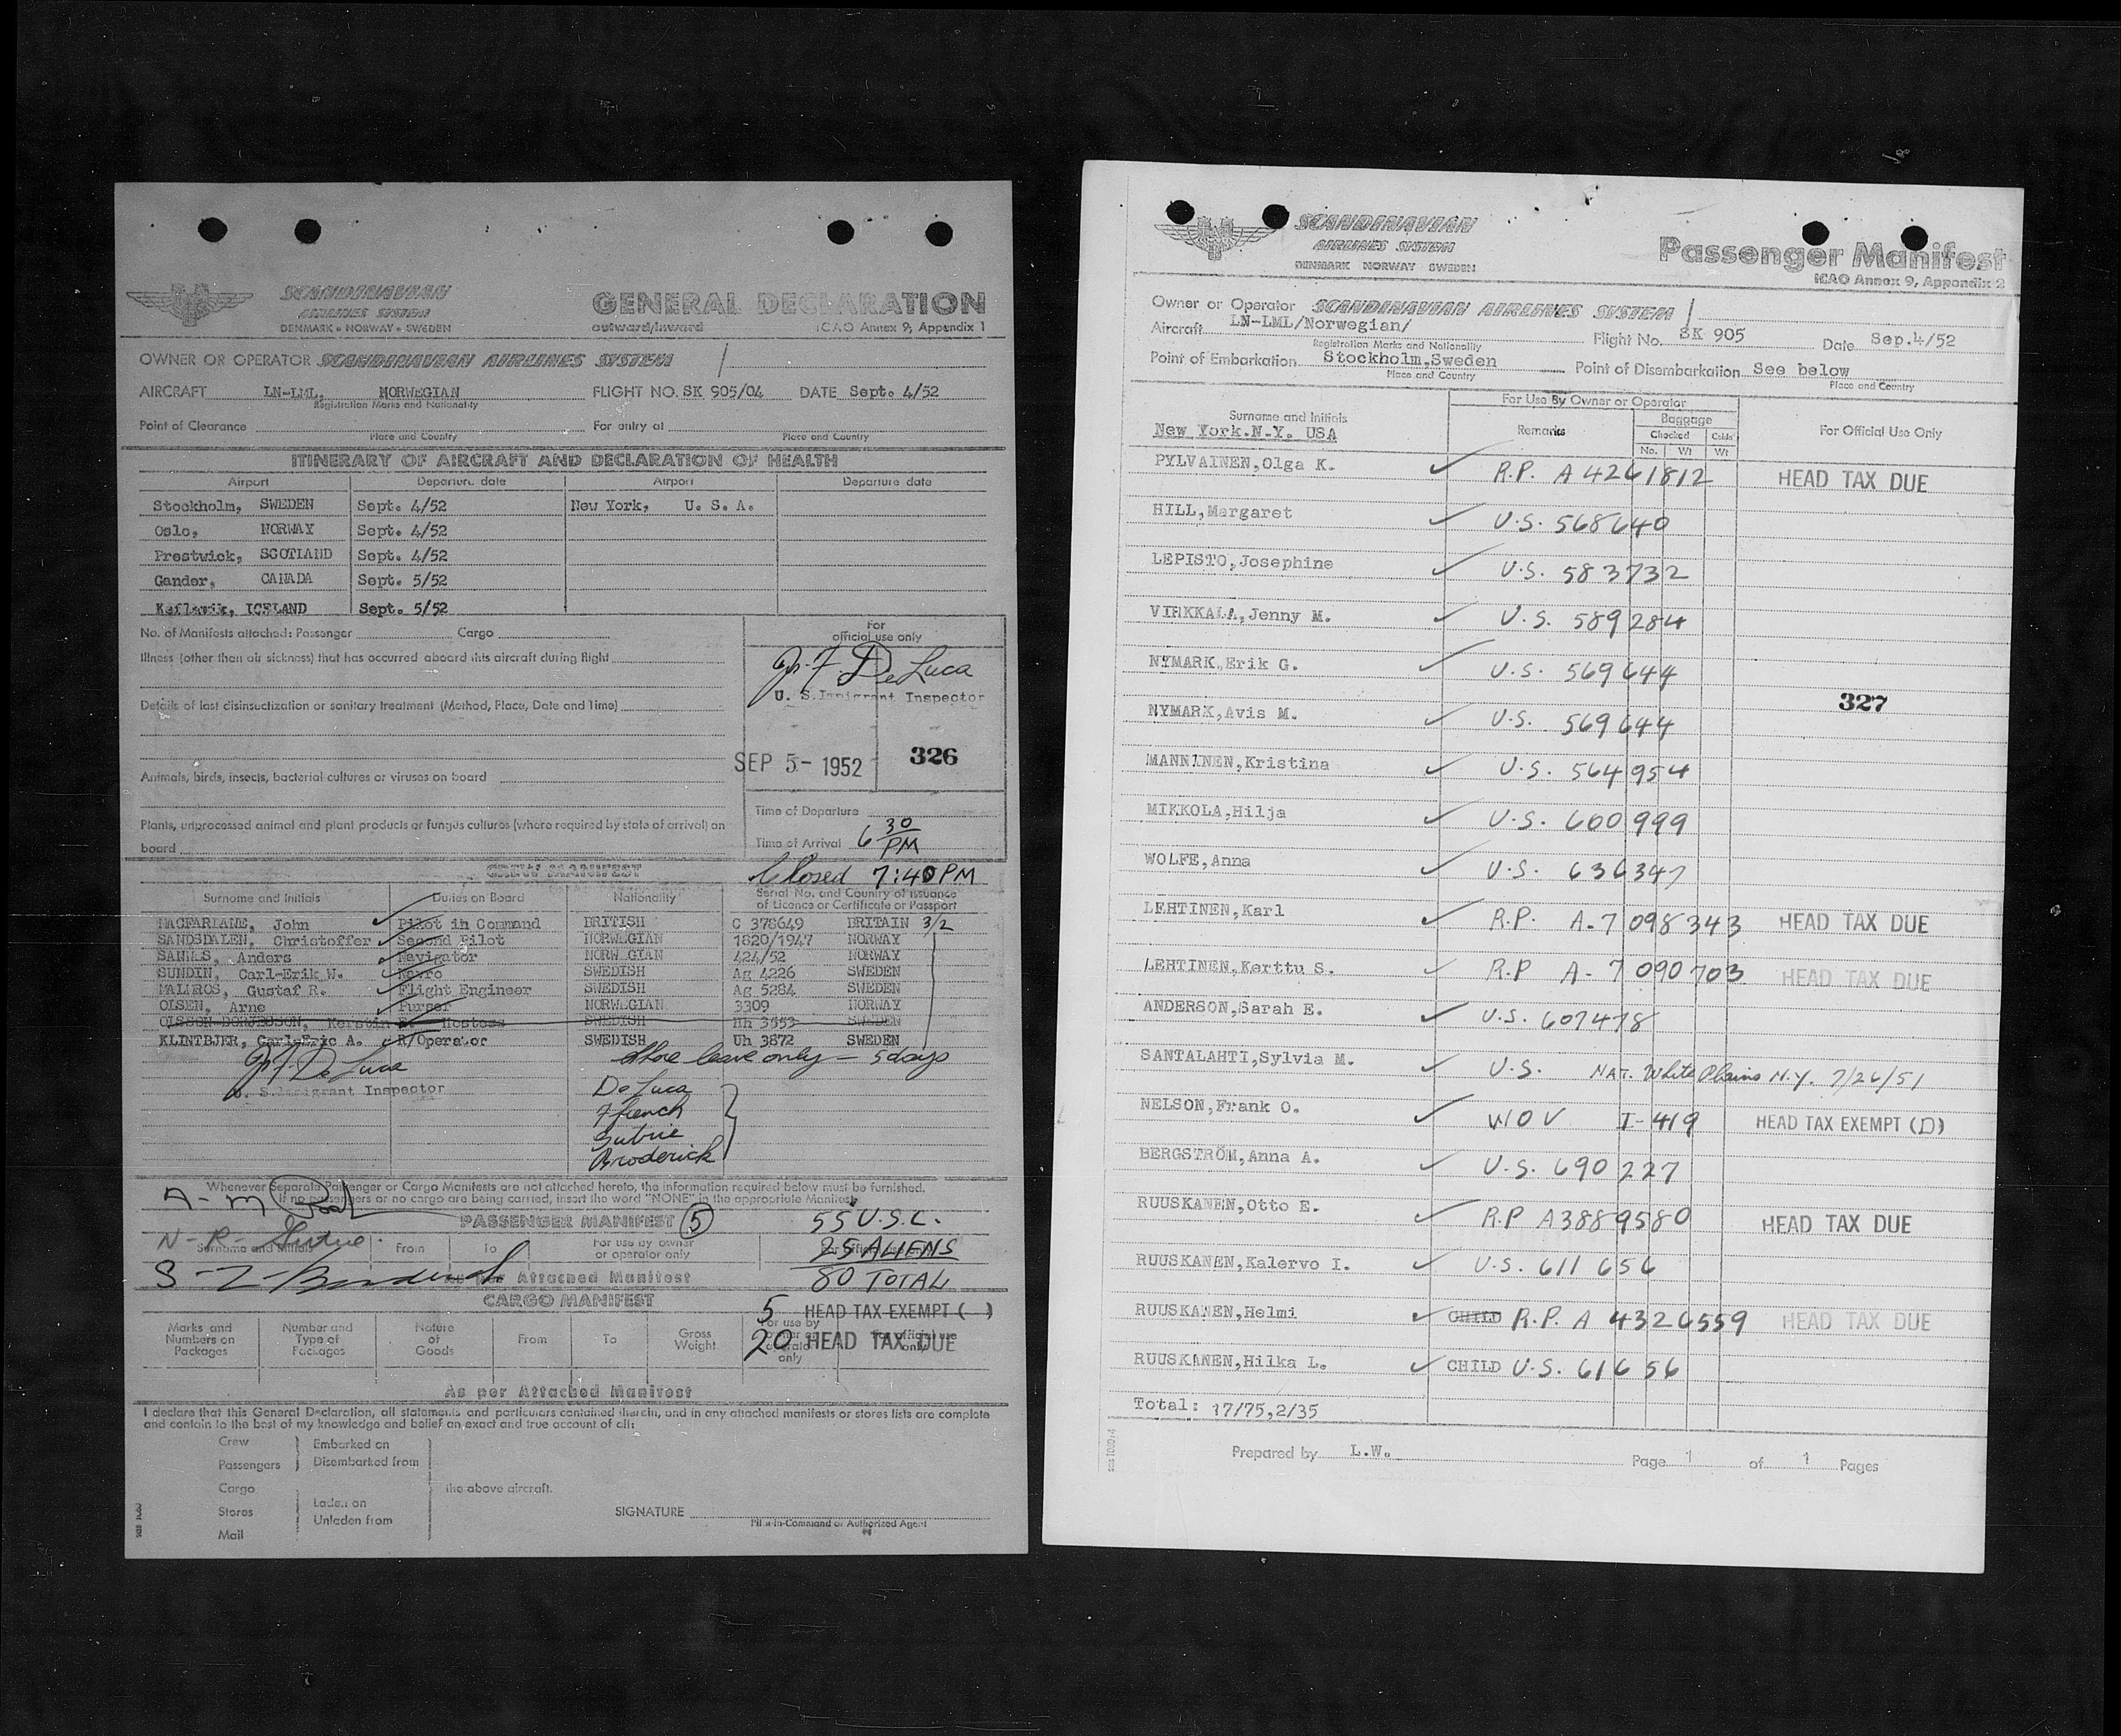 SCANDINAVIAN
AIRLINES SYSTEM
DENMARK • NORWAY • SWEDEN
GENERAL DECLARATION
outward/inward ICAO Annex 9, Appendix 1
OWNER OR OPERATOR SCANDINAVIAN AIRLINES SYSTEM /
AIRCRAFT LN-LML, NORWEGIAN FLIGHT NO. SK 905/04 DATE Sept. 4/52
Registration Marks and Nationality
Point of Clearance For entry at
Place and Country Place and Country
ITINERARY OF AIRCRAFT AND DECLARATION OF HEALTH
Airport Departure date Airport Departure date
Stockholm, SWEDEN Sept. 4/52 New York, U. S. A.
Oslo, NORWAY Sept. 4/52
Prestwick, SCOTLAND Sept. 4/52
Gander, CANADA Sept. 5/52
Keflavik, ICELAND Sept. 5/52
No. of Manifests attached: Passenger Cargo
Illness (other than air sickness) that has occurred aboard this aircraft during flight
Details of last disinsectization or sanitary treatment (Method, Place, Date and Time)
Animals, birds, insects, bacterial cultures or viruses on board
Plants, unprocessed animal and plant products or fungus cultures (where required by state of arrival) on
board
For
official use only
De Luca
U. S. Immigrant Inspector
SEP 5 - 1952 326
Time of Departure
Time of Arrival 6 30 PM
Closed 7:40 PM
CREW MANIFEST
Surname and Initials Duties on Board Nationality Serial No. and Country of Issuance
of Licence or Certificate or Passport
MACFARLANE, John Pilot in Command BRITISH C 378649 BRITAIN 3/2
SANDSDALEN, Christoffer Second Pilot NORWEGIAN 1820/1947 NORWAY
SANNES, Anders Navigator NORWEGIAN 424/52 NORWAY
SUNDIN, Carl-Erik W. Navro SWEDISH Ag 4226 SWEDEN
Gustaf R. Flight Engineer SWEDISH Ag 5284 SWEDEN
OLSEN, Arne Purser NORWEGIAN 3309 NORWAY
Kerstin Hostess SWEDISH Hh 3553 SWEDEN
KLINTBJER, Carl-Eric A. R/Operator SWEDISH Uh 3872 SWEDEN
Shore leave only - 5 days
De Luca
U. S. Immigrant Inspector
De Luca
Ffrench
Guthrie
Broderick
Whenever Separate Passenger or Cargo Manifests are not attached hereto, the information required below must be furnished.
If no passengers or no cargo are being carried, insert the word "NONE" in the appropriate Manifest.
PASSENGER MANIFEST 5
Surname and Initials From To For use by owner
or operator only
55 U.S.C.
25 ALIENS
80 TOTAL
As per Attached Manifest
CARGO MANIFEST
5 HEAD TAX EXEMPT ( )
20 HEAD TAX DUE
Marks and
Numbers on
Packages
Number and
Type of
Packages
Nature
of
Goods
From To Gross
Weight
As per Attached Manifest
I declare that this General Declaration, all statements and particulars contained therein, and in any attached manifests or stores lists are complete
and contain to the best of my knowledge and belief an exact and true account of all:
Crew Embarked on
Passengers Disembarked from
Cargo the above aircraft.
Stores Laden on
Mail Unladen from
SIGNATURE
Pilot-in-Command or Authorized Agent
SCANDINAVIAN
AIRLINES SYSTEM
DENMARK NORWAY SWEDEN
Passenger Manifest
ICAO Annex 9, Appendix 2
Owner or Operator SCANDINAVIAN AIRLINES SYSTEM /
Aircraft LN-LML/Norwegian/ Flight No. SK 905 Date Sep.4/52
Registration Marks and Nationality
Point of Embarkation Stockholm,Sweden Point of Disembarkation See below
Place and Country Place and Country
For Use By Owner or Operator
Surname and Initials Remarks Baggage For Official Use Only
Checked Cabin
No. Wt Wt
New York.N-Y. USA
PYLVAINEN,Olga K. R.P. A 4261812 HEAD TAX DUE
HILL,Margaret U.S. 568640
LEPISTO,Josephine U.S. 583732
VIRKKALA,Jenny M. U.S. 589284
NYMARK,Erik G. U.S. 569644
327
NYMARK,Avis M. U.S. 569644
MANNINEN,Kristina U.S. 564954
MIKKOLA,Hilja U.S. 600999
WOLFE,Anna U.S. 636347
LEHTINEN,Karl R.P. A-7098343 HEAD TAX DUE
LEHTINEN,Kerttu S. R.P A-7090703 HEAD TAX DUE
ANDERSON,Sarah E. U.S. 607478
SANTALAHTI,Sylvia M. U.S. NAT. White Plains N.Y. 7/26/51
NELSON,Frank O. WOV I-419 HEAD TAX EXEMPT (D)
BERGSTRÖM,Anna A. U.S. 690227
RUUSKANEN,Otto E. R.P A3889580 HEAD TAX DUE
RUUSKANEN,Kalervo I. U.S. 611656
RUUSKANEN,Helmi CHILD R.P. A 4326559 HEAD TAX DUE
RUUSKANEN,Hilka L. CHILD U.S. 61656
Total: 17/75,2/35
Prepared by L.W. Page 1 of 1 Pages